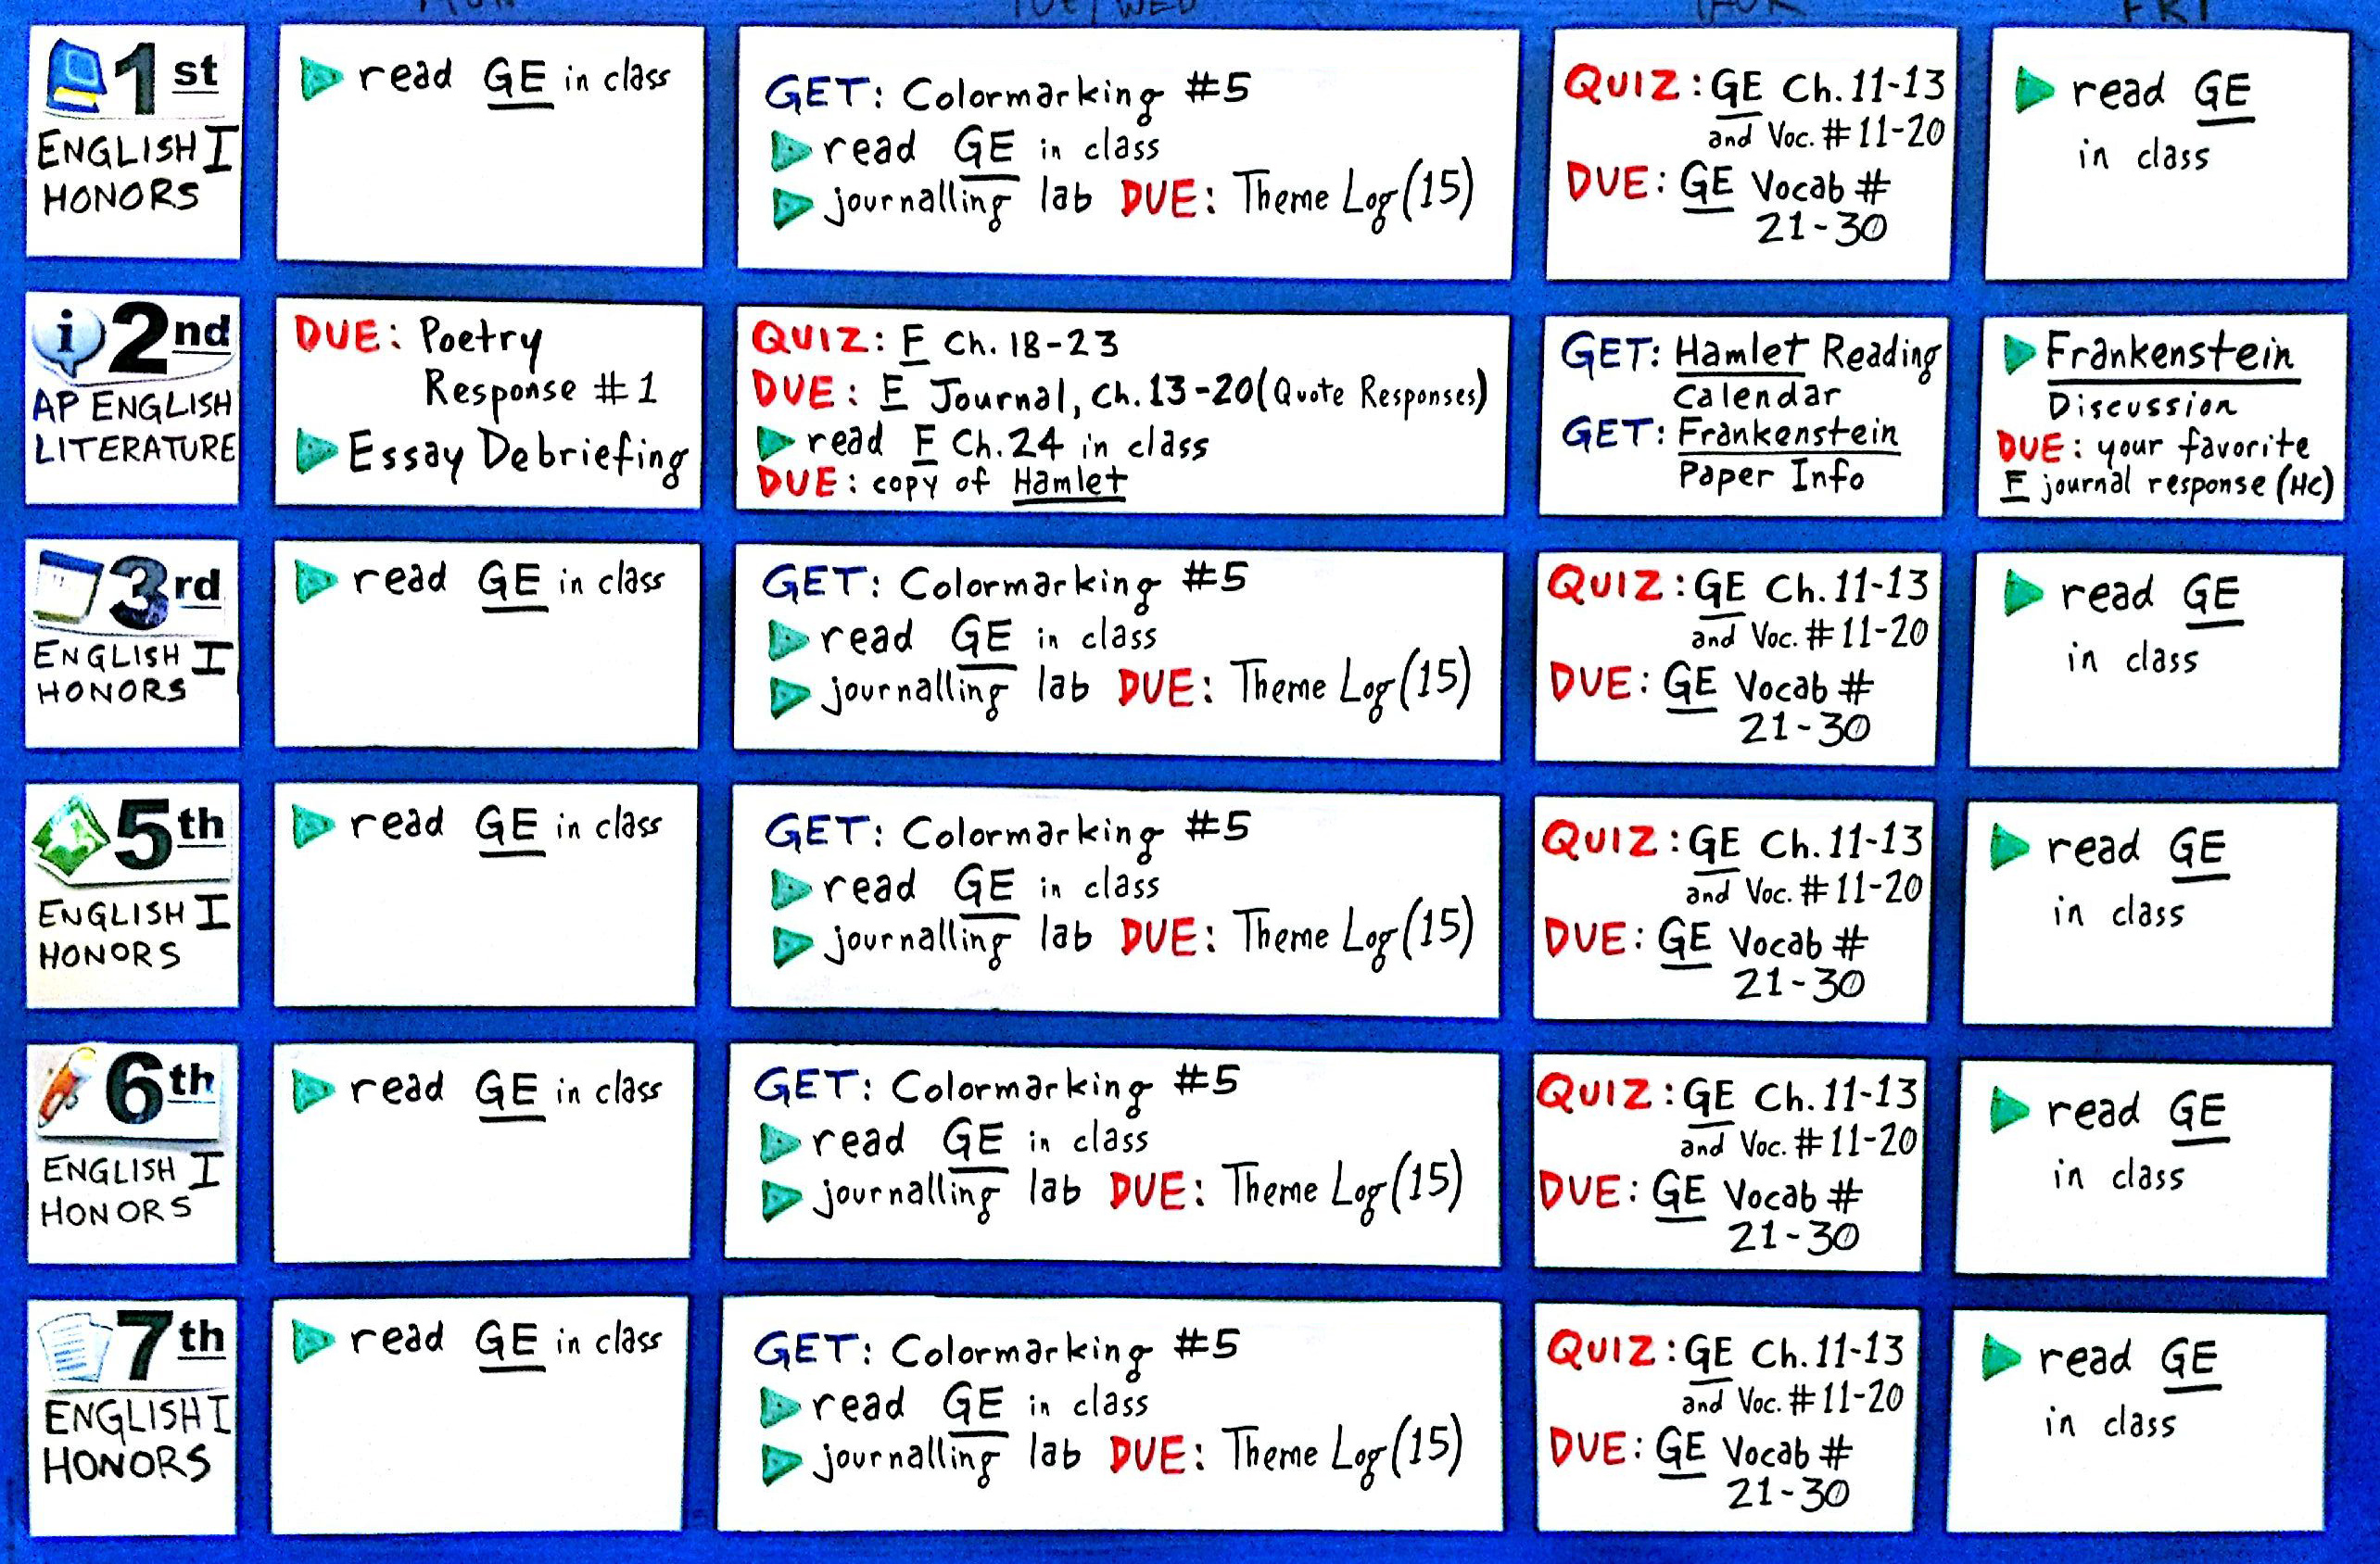 MON
TUE/WED
THUR
FRI
1st
ENGLISH I
HONORS
read GE in class
GET: Colormarking #5
read GE in class
journalling lab DUE: Theme Log (15)
QUIZ: GE Ch. 11-13
and Voc. # 11-20
DUE: GE Vocab #
21-30
read GE
in class
i
2nd
AP ENGLISH
LITERATURE
DUE: Poetry
Response # 1
Essay Debriefing
QUIZ: F Ch. 18-23
DUE: F Journal, Ch. 13-20 (Quote Responses)
read F Ch. 24 in class
DUE: copy of Hamlet
GET: Hamlet Reading
Calendar
GET: Frankenstein
Paper Info
Frankenstein
Discussion
DUE: your favorite
F journal response (HC)
3rd
ENGLISH I
HONORS
read GE in class
GET: Colormarking #5
read GE in class
journalling lab DUE: Theme Log (15)
QUIZ: GE Ch. 11-13
and Voc. # 11-20
DUE: GE Vocab #
21-30
read GE
in class
5th
ENGLISH I
HONORS
read GE in class
GET: Colormarking #5
read GE in class
journalling lab DUE: Theme Log (15)
QUIZ: GE Ch. 11-13
and Voc. # 11-20
DUE: GE Vocab #
21-30
read GE
in class
6th
ENGLISH I
HONORS
read GE in class
GET: Colormarking #5
read GE in class
journalling lab DUE: Theme Log (15)
QUIZ: GE Ch. 11-13
and Voc. # 11-20
DUE: GE Vocab #
21-30
read GE
in class
7th
ENGLISH I
HONORS
read GE in class
GET: Colormarking #5
read GE in class
journalling lab DUE: Theme Log (15)
QUIZ: GE Ch. 11-13
and Voc. # 11-20
DUE: GE Vocab #
21-30
read GE
in class